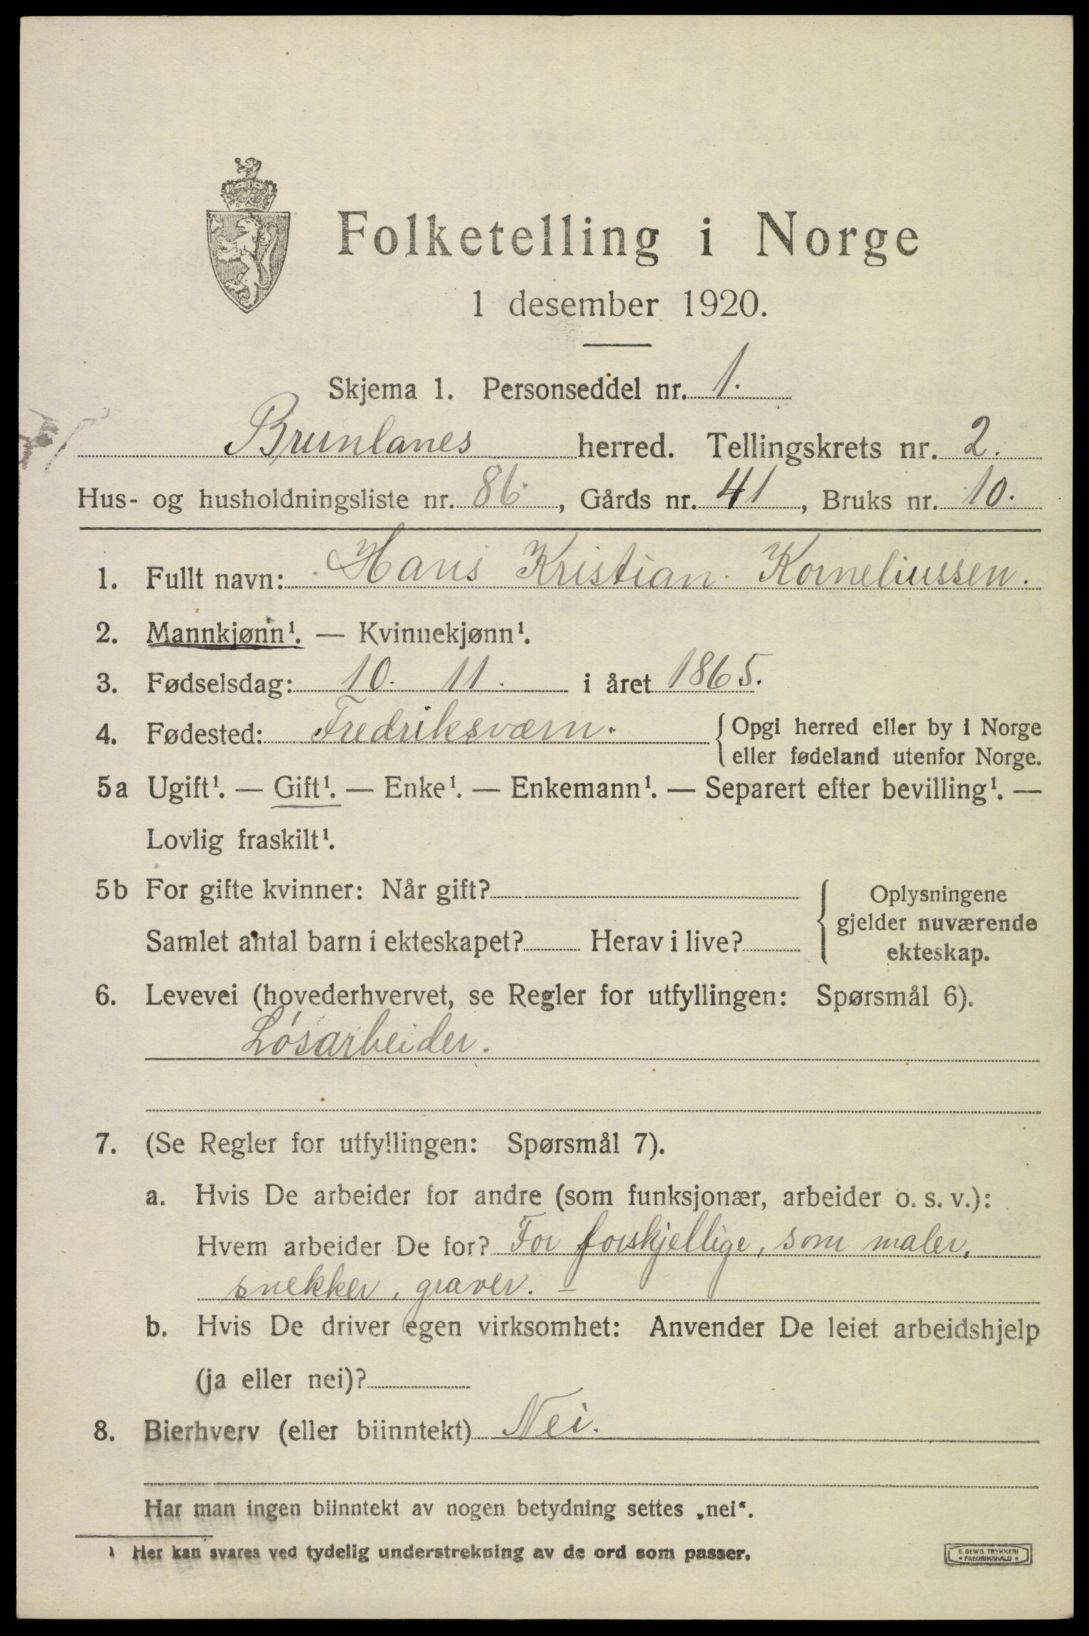 Folketelling i Norge
1 desember 1920.
Skjema 1. Personseddel nr. 1.
Brunlanes herred. Tellingskrets nr. 2.
Hus- og husholdningsliste nr. 86, Gårds nr. 41, Bruks nr. 10.
1. Fullt navn: Hans Kristian Korneliussen.
2. Mannkjønn¹. — Kvinnekjønn¹.
3. Fødselsdag: 10. 11. i året 1865.
4. Fødested: Fredriksværn. { Opgi herred eller by i Norge
eller fødeland utenfor Norge.
5a Ugift¹. — Gift¹. — Enke¹. — Enkemann¹. — Separert efter bevilling¹. —
Lovlig fraskilt¹.
5b For gifte kvinner: Når gift?
Samlet antal barn i ekteskapet? Herav i live?
{ Oplysningene
gjelder nuværende
ekteskap.
6. Levevei (hovederhvervet, se Regler for utfyllingen: Spørsmål 6).
Løsarbeider.
7. (Se Regler for utfyllingen: Spørsmål 7).
a. Hvis De arbeider for andre (som funksjonær, arbeider o. s. v.):
Hvem arbeider De for? For forskjellige, som maler,
snekker, graver. —
b. Hvis De driver egen virksomhet: Anvender De leiet arbeidshjelp
(ja eller nei)?
8. Bierhverv (eller biinntekt) Nei.
Har man ingen biinntekt av nogen betydning settes „nei“.
¹ Her kan svares ved tydelig understrekning av de ord som passer.
E. SEWS TRYKKERI
• FREDRIKSHALD •